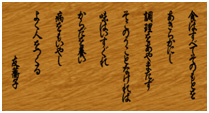 食はすべてそのもとを
あきらかにし
調理をあやまたず
そのことなければ
味はひすぐれ
からだを養い
病をもいやし
よく人をつくる